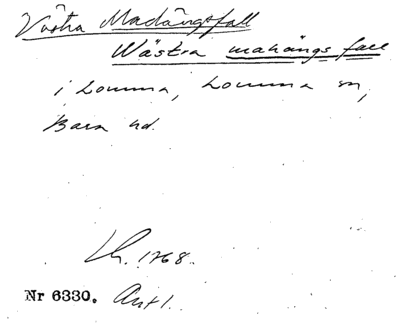 Västra Madängsfall
Wästra mahängs fall
i Lomma, Lomma sn,
Bara hd.
Lh. 1768.
Nr 6330. Avt 1.